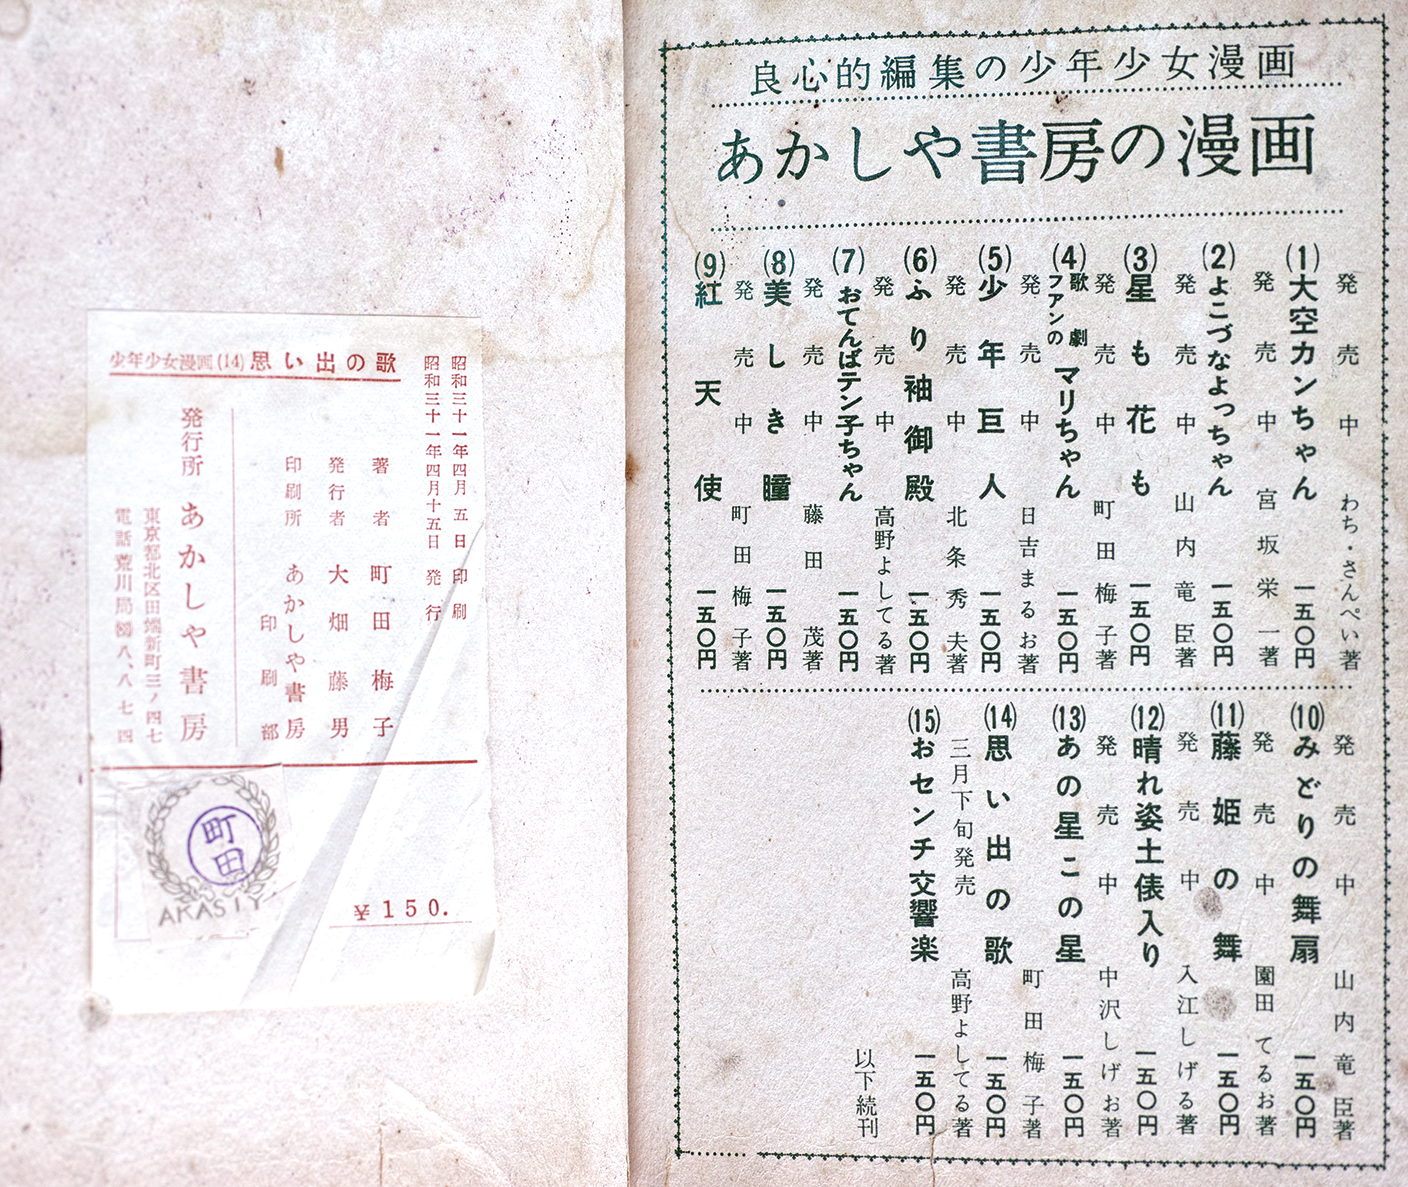 良心的編集の少年少女漫画
あかしや書房の漫画
発売中 わち・さんぺい著
(1)大空カンちゃん 一五〇円
発売中 宮坂栄一著
(2)よこづなよっちゃん 一五〇円
発売中 山内竜臣著
(3)星も花も 一五〇円
発売中 町田梅子著
(4)歌劇フアンのマリちゃん 一五〇円
発売中 日吉まるお著
(5)少年巨人 一五〇円
発売中 北条秀夫著
(6)ふり袖御殿 一五〇円
発売中 高野よしてる著
(7)おてんばテン子ちゃん 一五〇円
発売中 藤田茂著
(8)美しき瞳 一五〇円
発売中 町田梅子著
(9)紅天使 一五〇円
発売中 山内竜臣著
(10)みどりの舞扇 一五〇円
発売中 園田てるお著
(11)藤姫の舞 一五〇円
発売中 入江しげる著
(12)晴れ姿土俵入り 一五〇円
発売中 中沢しげお著
(13)あの星この星 一五〇円
町田梅子著
(14)思い出の歌 一五〇円
三月下旬発売 高野よしてる著
(15)おセンチ交響楽 一五〇円
以下続刊
少年少女漫画(14)思い出の歌
昭和三十一年四月五日印刷
昭和三十一年四月十五日発行
著者 町田梅子
発行者 大畑藤男
印刷所 あかしや書房
印刷部
発行所 あかしや書房
東京都北区田端新町三ノ四七
電話荒川局 八、八七四
町田
AKASIY
¥150.